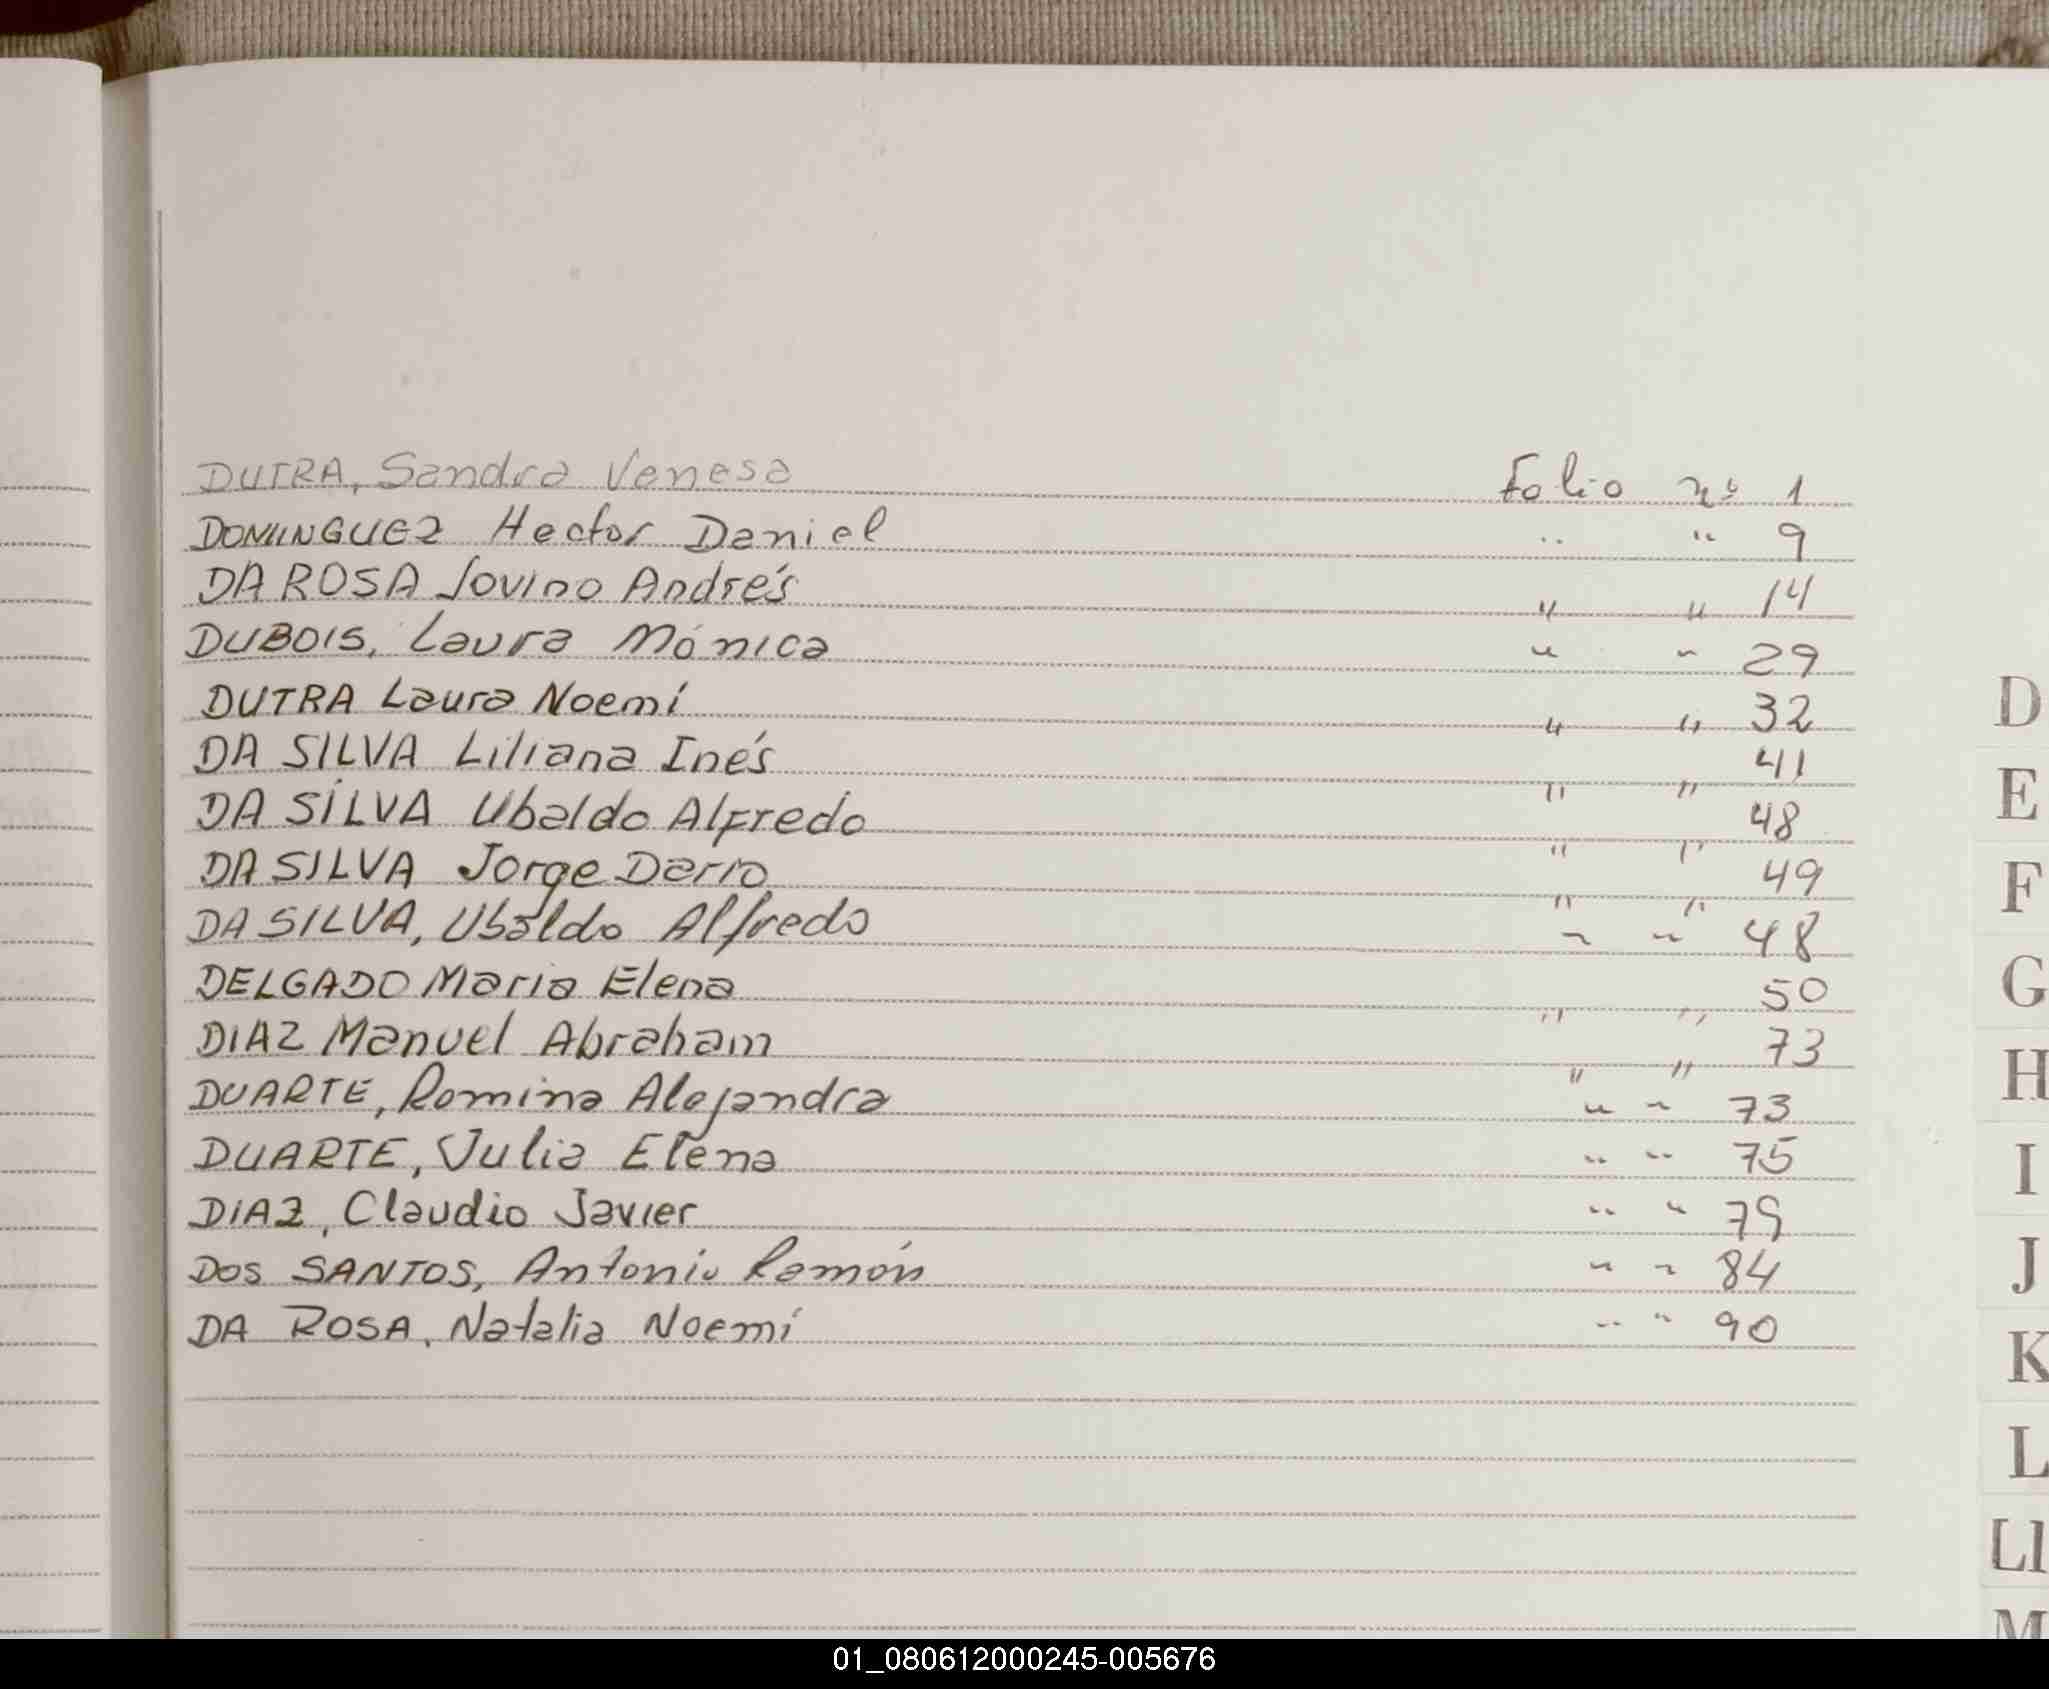 DUTRA, Sandra Vanesa Folio nº 1
DOMINGUEZ Hector Daniel " " 9
DA ROSA Jovino Andrés " " 14
DUBOIS, Laura Mónica " " 29
DUTRA Laura Noemí " " 32
D
DA SILVA Liliana Inés " " 41
E
DA SILVA Ubaldo Alfredo " " 48
DA SILVA Jorge Dario " " 49
F
DA SILVA, Ubaldo Alfredo " " 48
DELGADO Maria Elena " " 50
G
DIAZ Manuel Abraham " " 73
H
DUARTE, Romina Alejandra " " 73
DUARTE, Julia Elena " " 75
I
DIAZ, Claudio Javier " " 79
DOS SANTOS, Antonio Ramón " " 84
J
DA ROSA, Natalia Noemí " " 90
K
L
Ll
M
01_080612000245-005676